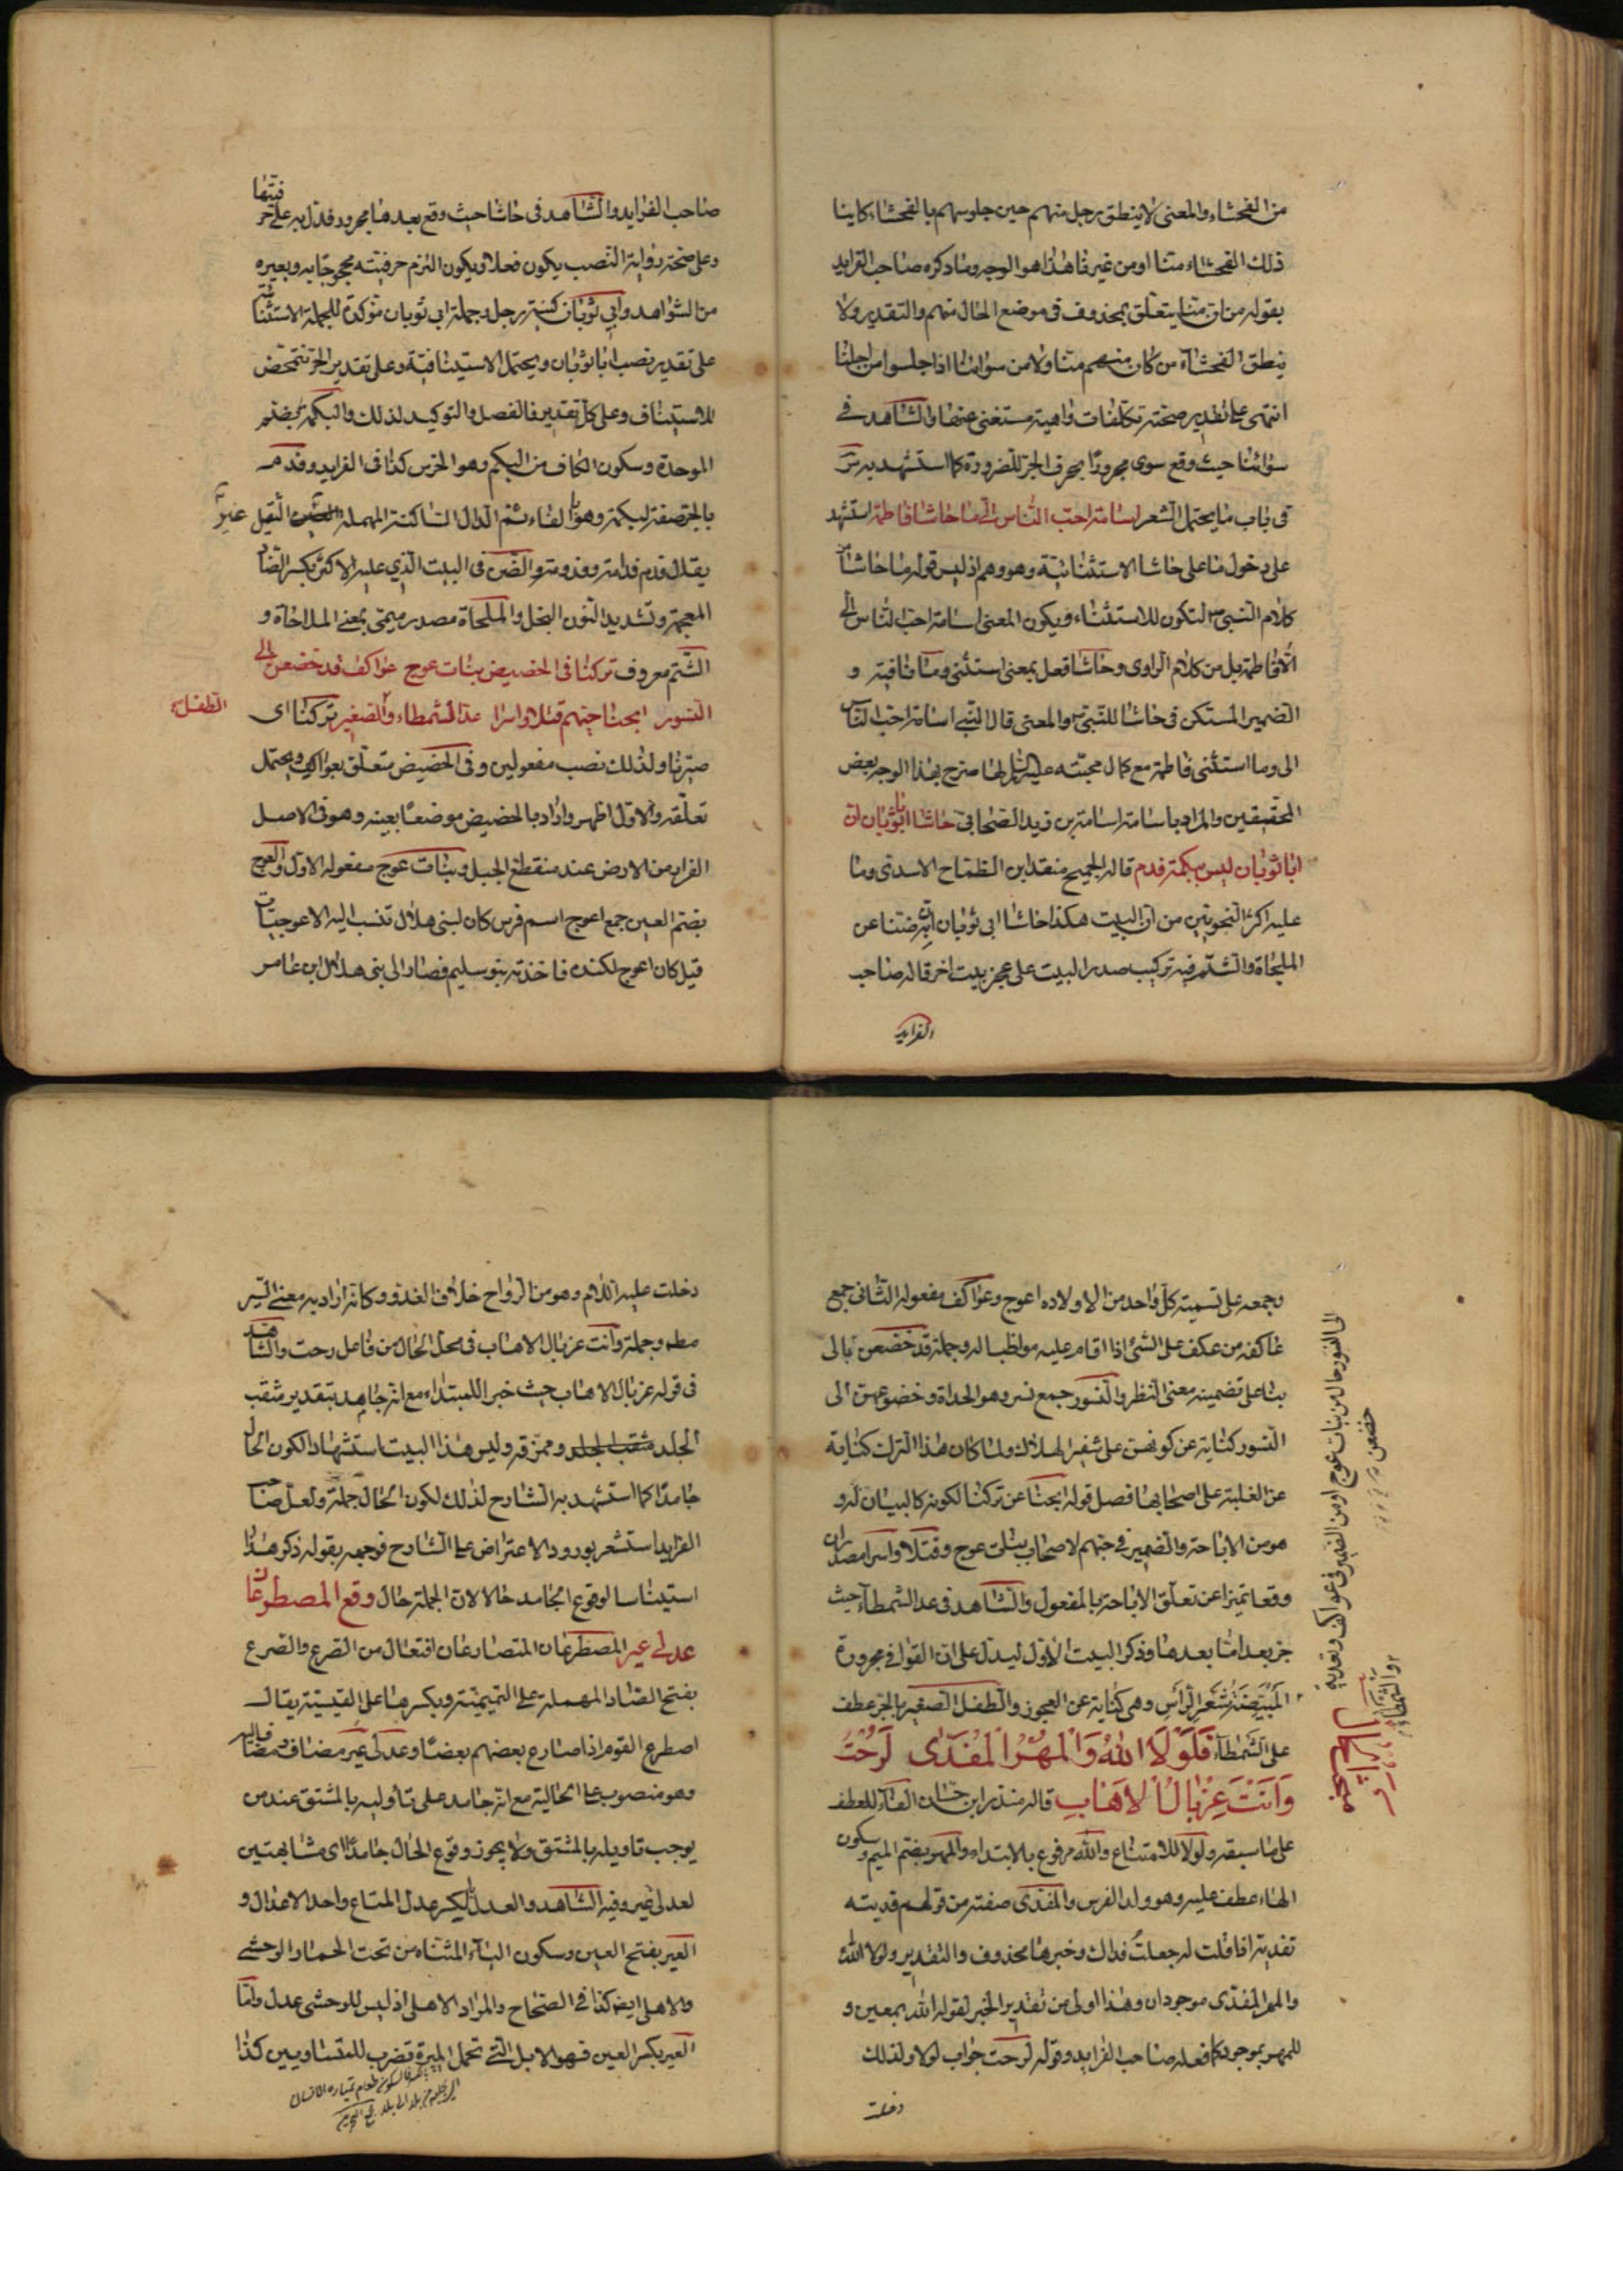 من الفحشاء والمعنى لا ينطق رجل منهم حين جلوسهم بالفحشاء كاينا
ذلك الفحشاء منا او من غيرنا هذا هو الوجه وما ذكره صاحب الفرايد
بقوله من ان منا يتعلق بمحذوف في موضع الحال منهم والتقدير ولا
ينطق الفحشاء من كان منهم منا ولا من سوائنا اذا جلسوا من اجلنا
انتهى على تقدير صحته تكلفات واهية مستغنى عنها والشاهد في
سوائنا حيث وقع سوى مجرورا بحرف الجر للضرورة كما استشهد به س
في باب ما يحتمل الشعر اسامة احب الناس الى ما حاشا فاطمة استشهد
على دخول ما على حاشا الاستثنائية وهو وهم اذ ليس قوله ما حاشا من
كلام النبي ص لتكون للاستثناء ويكون المعنى اسامة احب الناس الى
الا فاطمة بل من كلام الراوى وحاشا فعل بمعنى استثنى وما نافية و
الضمير المستكن في حاشا للنبي ص والمعنى قال النبي اسامة احب الناس
الى وما استثنى فاطمة مع كمال محبته عليه السلام لها صرح بهذا الوجه بعض
المحققين والمراد باسامة اسامة بن زيد الصحابى حاشا ابا ثوبان ان
ابا ثوبان ليس ببكمة فدم قاله الجميح منقذ بن الطماح الاسدى وما
عليه اكثر النحويين من ان البيت هكذا حاشا ابى ثوبان ان به ضنا عن
الملحاة والشتم فيه تركيب صدر البيت على عجز بيت اخر قاله صاحب
الفرايد
صاحب الفرايد والشاهد في حاشا حيث وقع بعدها مجرور فدل به على حر
فيتها
وعلى صحة رواية النصب يكون فعلا ويكون التزم حرفيته محجوجا به وبغيره
من الشواهد وابى ثوبان كنية رجل وجملة ابى ثوبان مؤكدة للجملة الاستثنائية
على تقدير نصب ابا ثوبان ويحتمل الاستينافية وعلى تقدير الجر تتمحض
للاستيناف وعلى كل تقدير فالفصل والتوكيد لذلك والبكمة بضم
الموحدة وسكون الكاف من البكم وهو الخرس كذا في الفرايد وفدم
بالجر صفة لبكمة وهو بالفاء ثم الدال الساكنة المهملة الثقيل
يقال فدم فدامة وفدومة والضن في البيت الذي عليه الاكثر بكسر الضاد
المعجمة وتشديد النون البخل والملحاة مصدر ميمى بمعنى الملاحاة و
الشتم معروف تركنا في الحضيض بنات عوج عواكف قد خضعن الى
النسور ابحنا حيهم قتلا واسرا عدا الشمطاء والصغير تركنا اى
الطفل
صيرنا ولذلك نصب مفعولين وفي الحضيض متعلق بعواكف ويحتمل
تعلقه والاول اظهر واراد بالحضيض موضعا بعينه وهو في الاصل
القرار من الارض عند منقطع الجبل وبنات عوج مفعوله الاول والعوج
بضم العين جمع اعوج اسم فرس كان لبنى هلال تنسب اليه الاعوجيات
قيل كان اعوج لكندة فاخذته بنو سليم فصار الى بنى هلال ابن عامر
وجمعه على تسمية كل واحد من اولاده اعوج وعواكف مفعوله الثانى جمع
عاكفة من عكف على الشئ اذا اقام عليه مواظبا له وجملة قد خضعن بالى
بناء على تضمينه معنى النظر والنسور جمع نسر وهو الحداة وخضوعهن الى
النسور كناية عن كونهن على شفير الهلاك ولما كان هذا الترك كناية
عن الغلبة على اصحابها فصل قوله ابحنا عن تركنا لكونه كالبيان له و
هو من الاباحة والضمير في حيهم لاصحاب بنات عوج وقتلا واسرا مصدران
وقعا تميزا عن تعلق الاباحة بالمفعول والشاهد في عدا الشمطاء حيث
جر بعدا ما بعدها وذكر البيت الاول ليدل على ان القوافي مجرورة
المبيضة شعر الراس وهى كناية عن العجوز والطفل الصغير بالجر عطف
على الشمطاء فَلَوْلَا اللهُ وَالْمُهْرُ الْمُفَدّى لَرُحْتَ
وَاَنْتَ غِرْبَالُ الْاِهَابِ قاله منذر ابن حسان الفاء للعطف
على ما سبقه ولولا للامتناع والله مرفوع بالابتداء والمهر بضم الميم وسكون
الهاء عطف عليه وهو ولد الفرس والمفدى صفته من قولهم فديته
تفدية اذا قلت له جعلت فداك وخبرها محذوف والتقدير ولولا الله
والمهر المفدى موجودان وهذا اولى من تقدير الخبر لقوله الله بمعين و
للمهر بموجود كما فعله صاحب الفرايد وقوله لرحت جواب لولا ولذلك
دخلت
الى النسور حال من بنات عوج او من الضمير في عواكف وتعدية
خضعن
والشمطاء
دخلت عليه اللام وهو من الرواح خلاف الغدو وكانه اراد به معنى السير
مطلقا وجملة وانت غربال الاهاب في محل الحال من فاعل رحت والشاهد
في قوله غربال الاهاب حيث خبر اللمبتداء مع انه جامد بتقدير مثقب
الجلد وممزقه وليس هذا البيت استشهادا لكون الحال
جامدا كما استشهد به الشارح لذلك لكون الحال جملة ولعل صاحب
الفرايد استشعر بورود الاعتراض على الشارح فوجهه بقوله ذكر هذا
استيناسا لوقوع الجامد حالا لان الجملة حال وقع المصطرعان
عدلى عير المصطرعان المتصارعان افتعال من الصرع والصرع
بفتح الصاد المهملة على التميمية وبكسرها على القيسية يقال
اصطرع القوم اذا صارع بعضهم بعضا وعدلى عير مضاف ومضاف اليه
وهو منصوب على الحالية مع انه جامد على تأوليه بالمشتق عند من
يوجب تاويله بالمشتق ولا يجوز وقوع الحال جامدا اى مشابهتين
لعدلى عير وفيه الشاهد والعدل بالكسر عدل المتاع واحد الاعدال و
العير بفتح العين وسكون الياء المثناه من تحت الحمار الوحشى
والاهلى ايضا كذا في الصحاح والمراد الاهلى اذ ليس للوحشى عدل واما
العير بكسر العين فهو الابل التى تحمل الميرة تضرب للمتساويين كذا